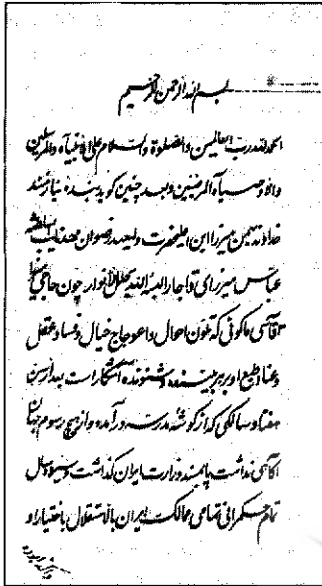 بسم الله الرحمن الرحیم
الحمد لله رب العالمین والصلوة والسلام علی الانبیآء والمرسلین
والاوصیآء المرضیین وبعد چنین کوید بنده نیازمند
خداوند بهمن میرزا ابن اعلیحضرت ولیعهد رضوان مهد نایب السلطنه
عباس میرزای قاجار البسه الله حلل الانوار چون حاجی میرزا
آقاسی ماکوئی که تلون احوال واعوجاج خیال وفساد عقل
وعناد طبع او بر هر بیننده وشنونده آشکار است بعد از سن
هفتاد سالکی که از کوشه مدرسه در آمده واز هیچ رسوم جهان
آکاهی نداشت پا بمسند وزارت ایران کذاشت و
تمام حکمرانی تمامی ممالک ایران بالاستقلال باختیار او